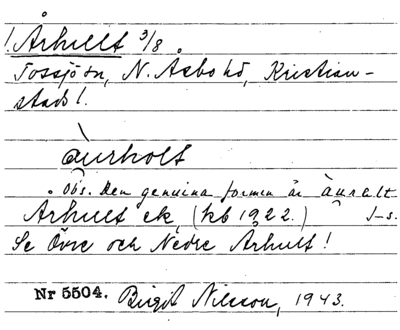 1. Århult 3/8
Tossjö sn, N. Åsbo hd, Kristian-
stads l.
àurholt
Obs. Den genuina formen är àuralt
Århult ek. (kb 1922.) J-s.
Se Övre och Nedre Århult!
Nr 5504. Birgit Nilsson, 1943.